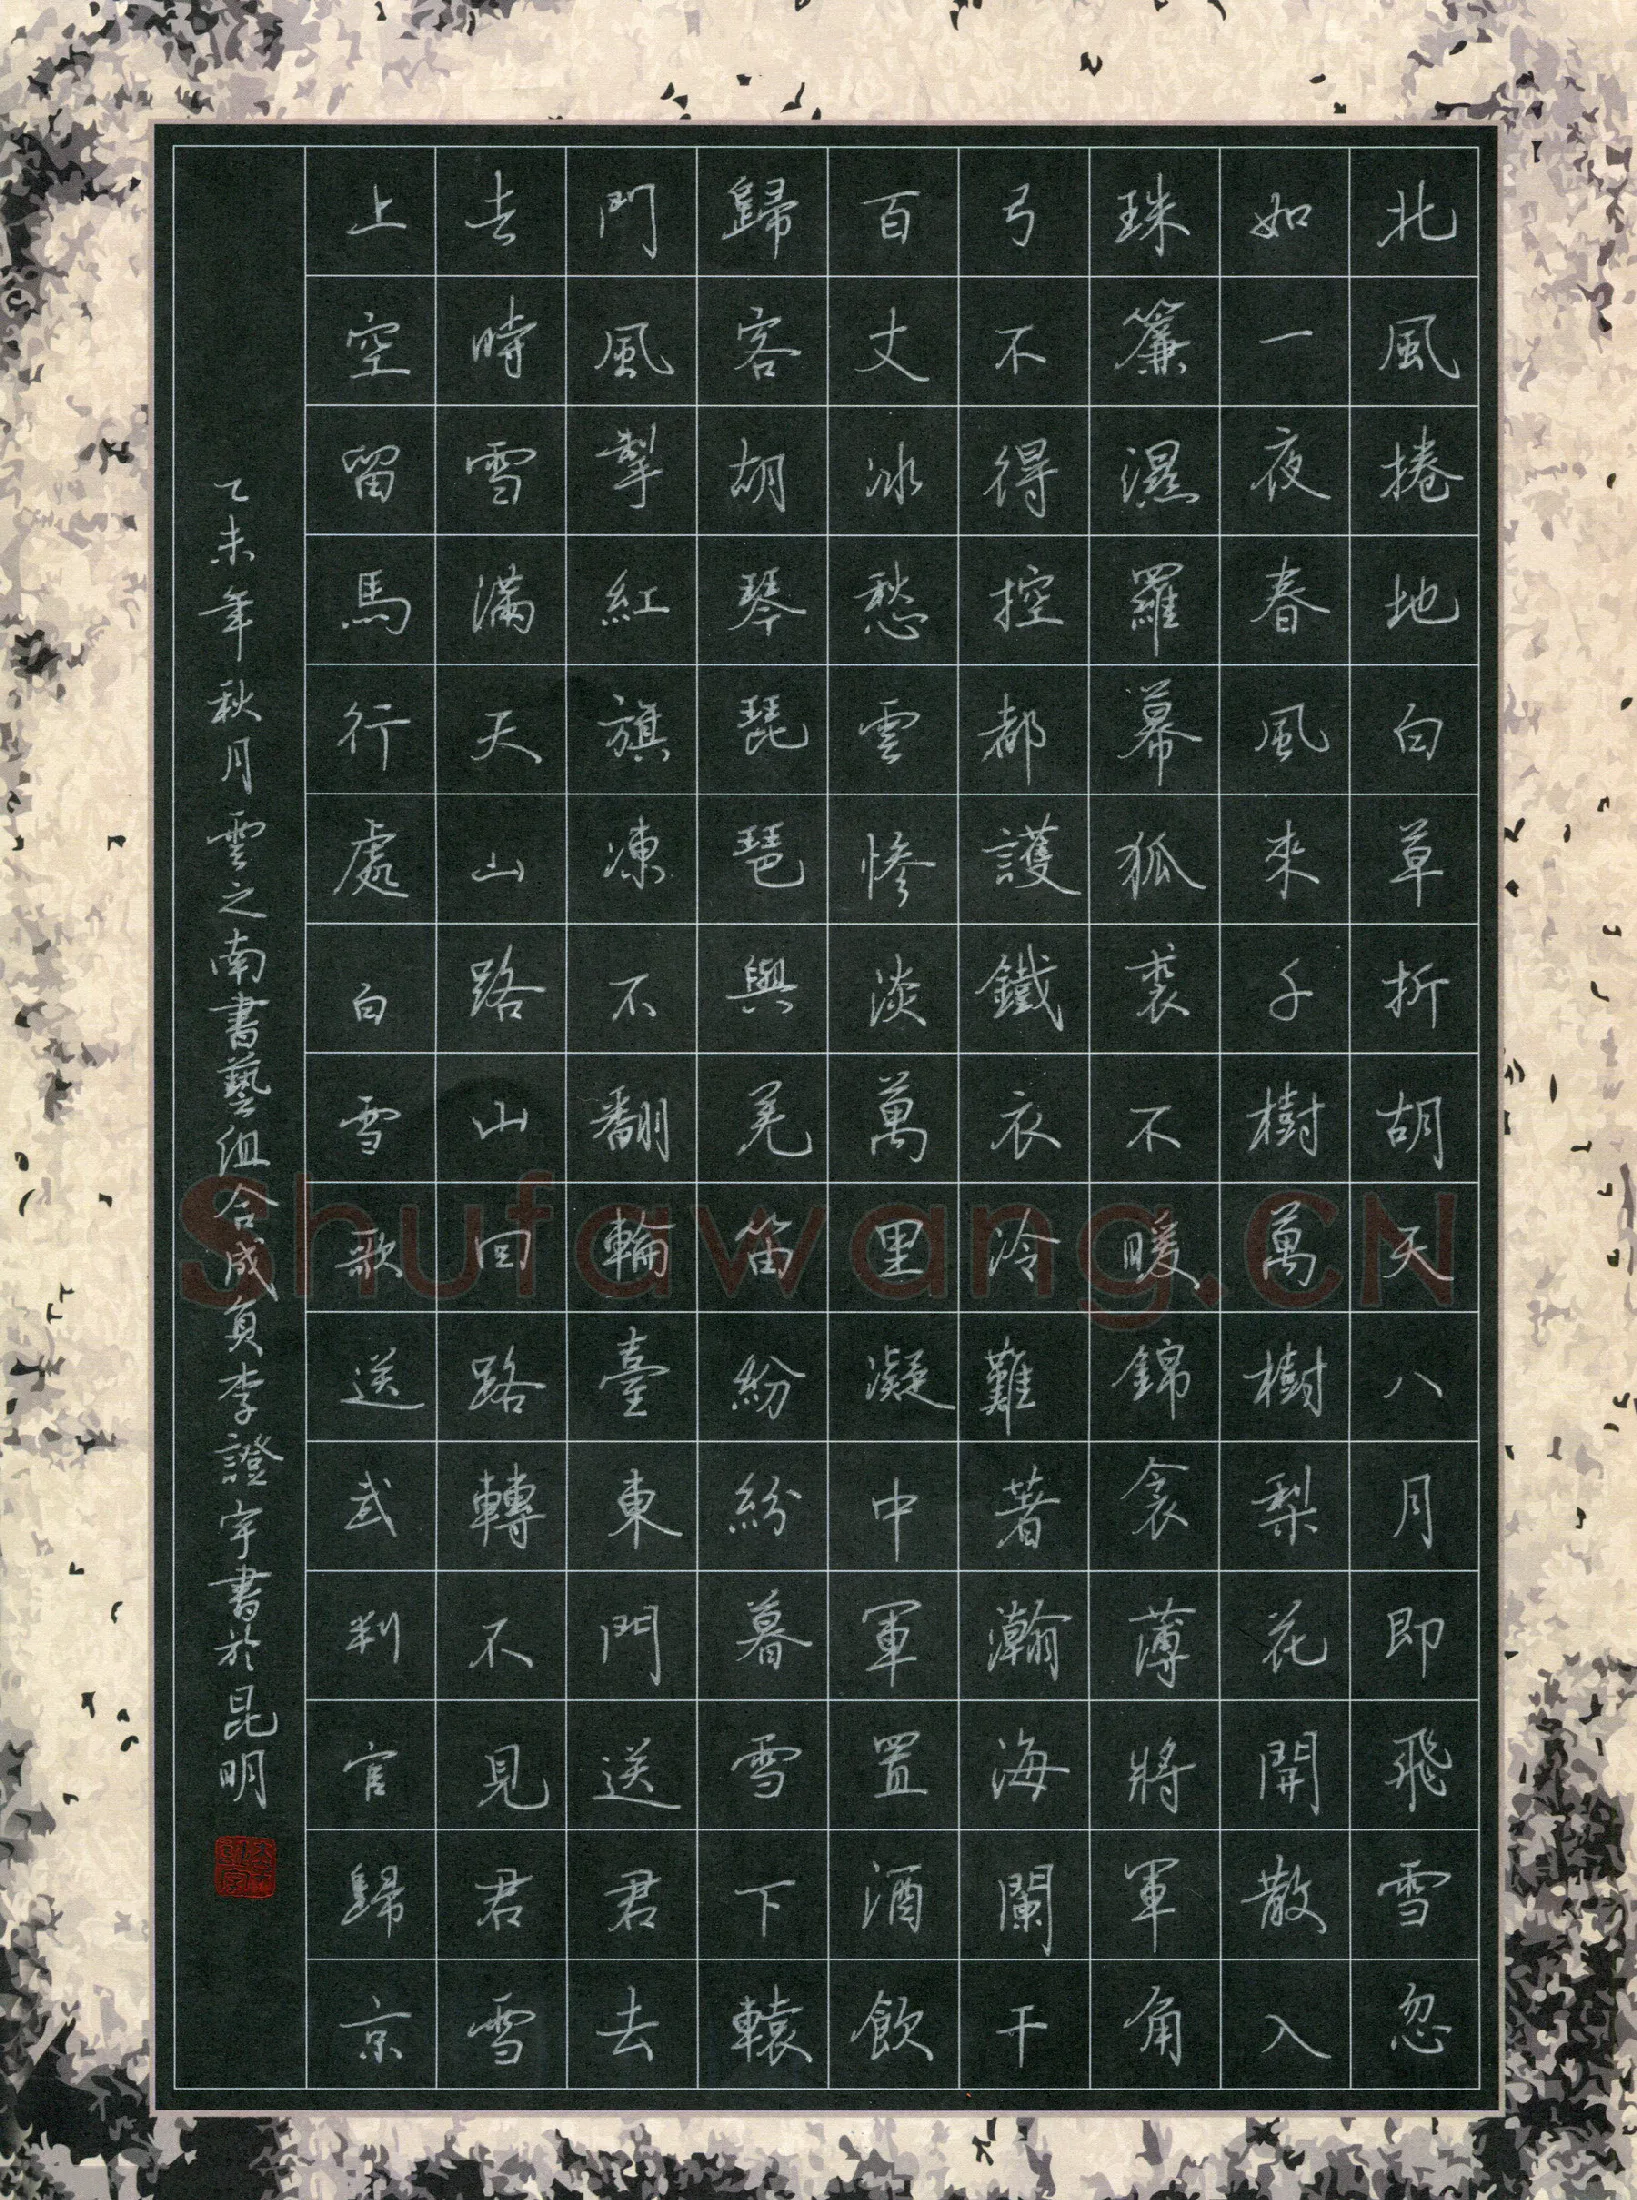 北風捲地白草折胡天八月即飛雪忽
如一夜春風來千樹萬樹梨花開散入
珠簾濕羅幕狐裘不暖錦衾薄將軍角
弓不得控都護鐵衣冷難著瀚海闌干
百丈冰愁雲慘淡萬里凝中軍置酒飲
歸客胡琴琵琶與羌笛紛紛暮雪下轅
門風掣紅旗凍不翻輪臺東門送君去
去時雪滿天山路山回路轉不見君雪
上空留馬行處白雪歌送武判官歸京
乙未年秋月雲之南書藝組合成員李證宇書於昆明
Shufawang.CN